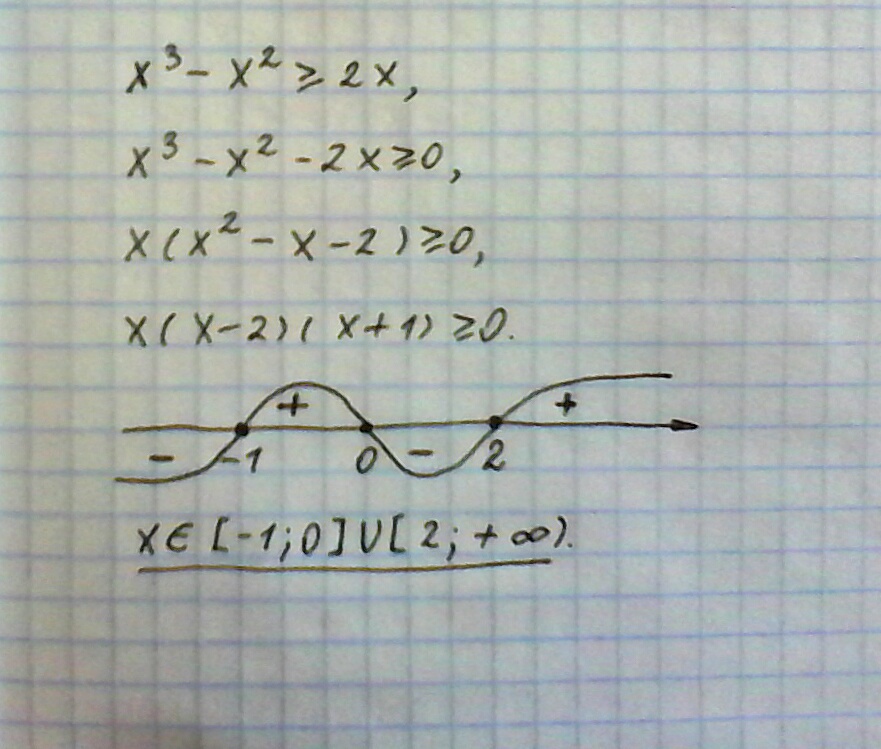 x³ - x² ≥ 2x,
x³ - x² - 2x ≥ 0,
x(x² - x - 2) ≥ 0,
x(x-2)(x+1) ≥ 0.
+ +
- -1 0 - 2
x ∈ [-1; 0] ∪ [2; +∞).